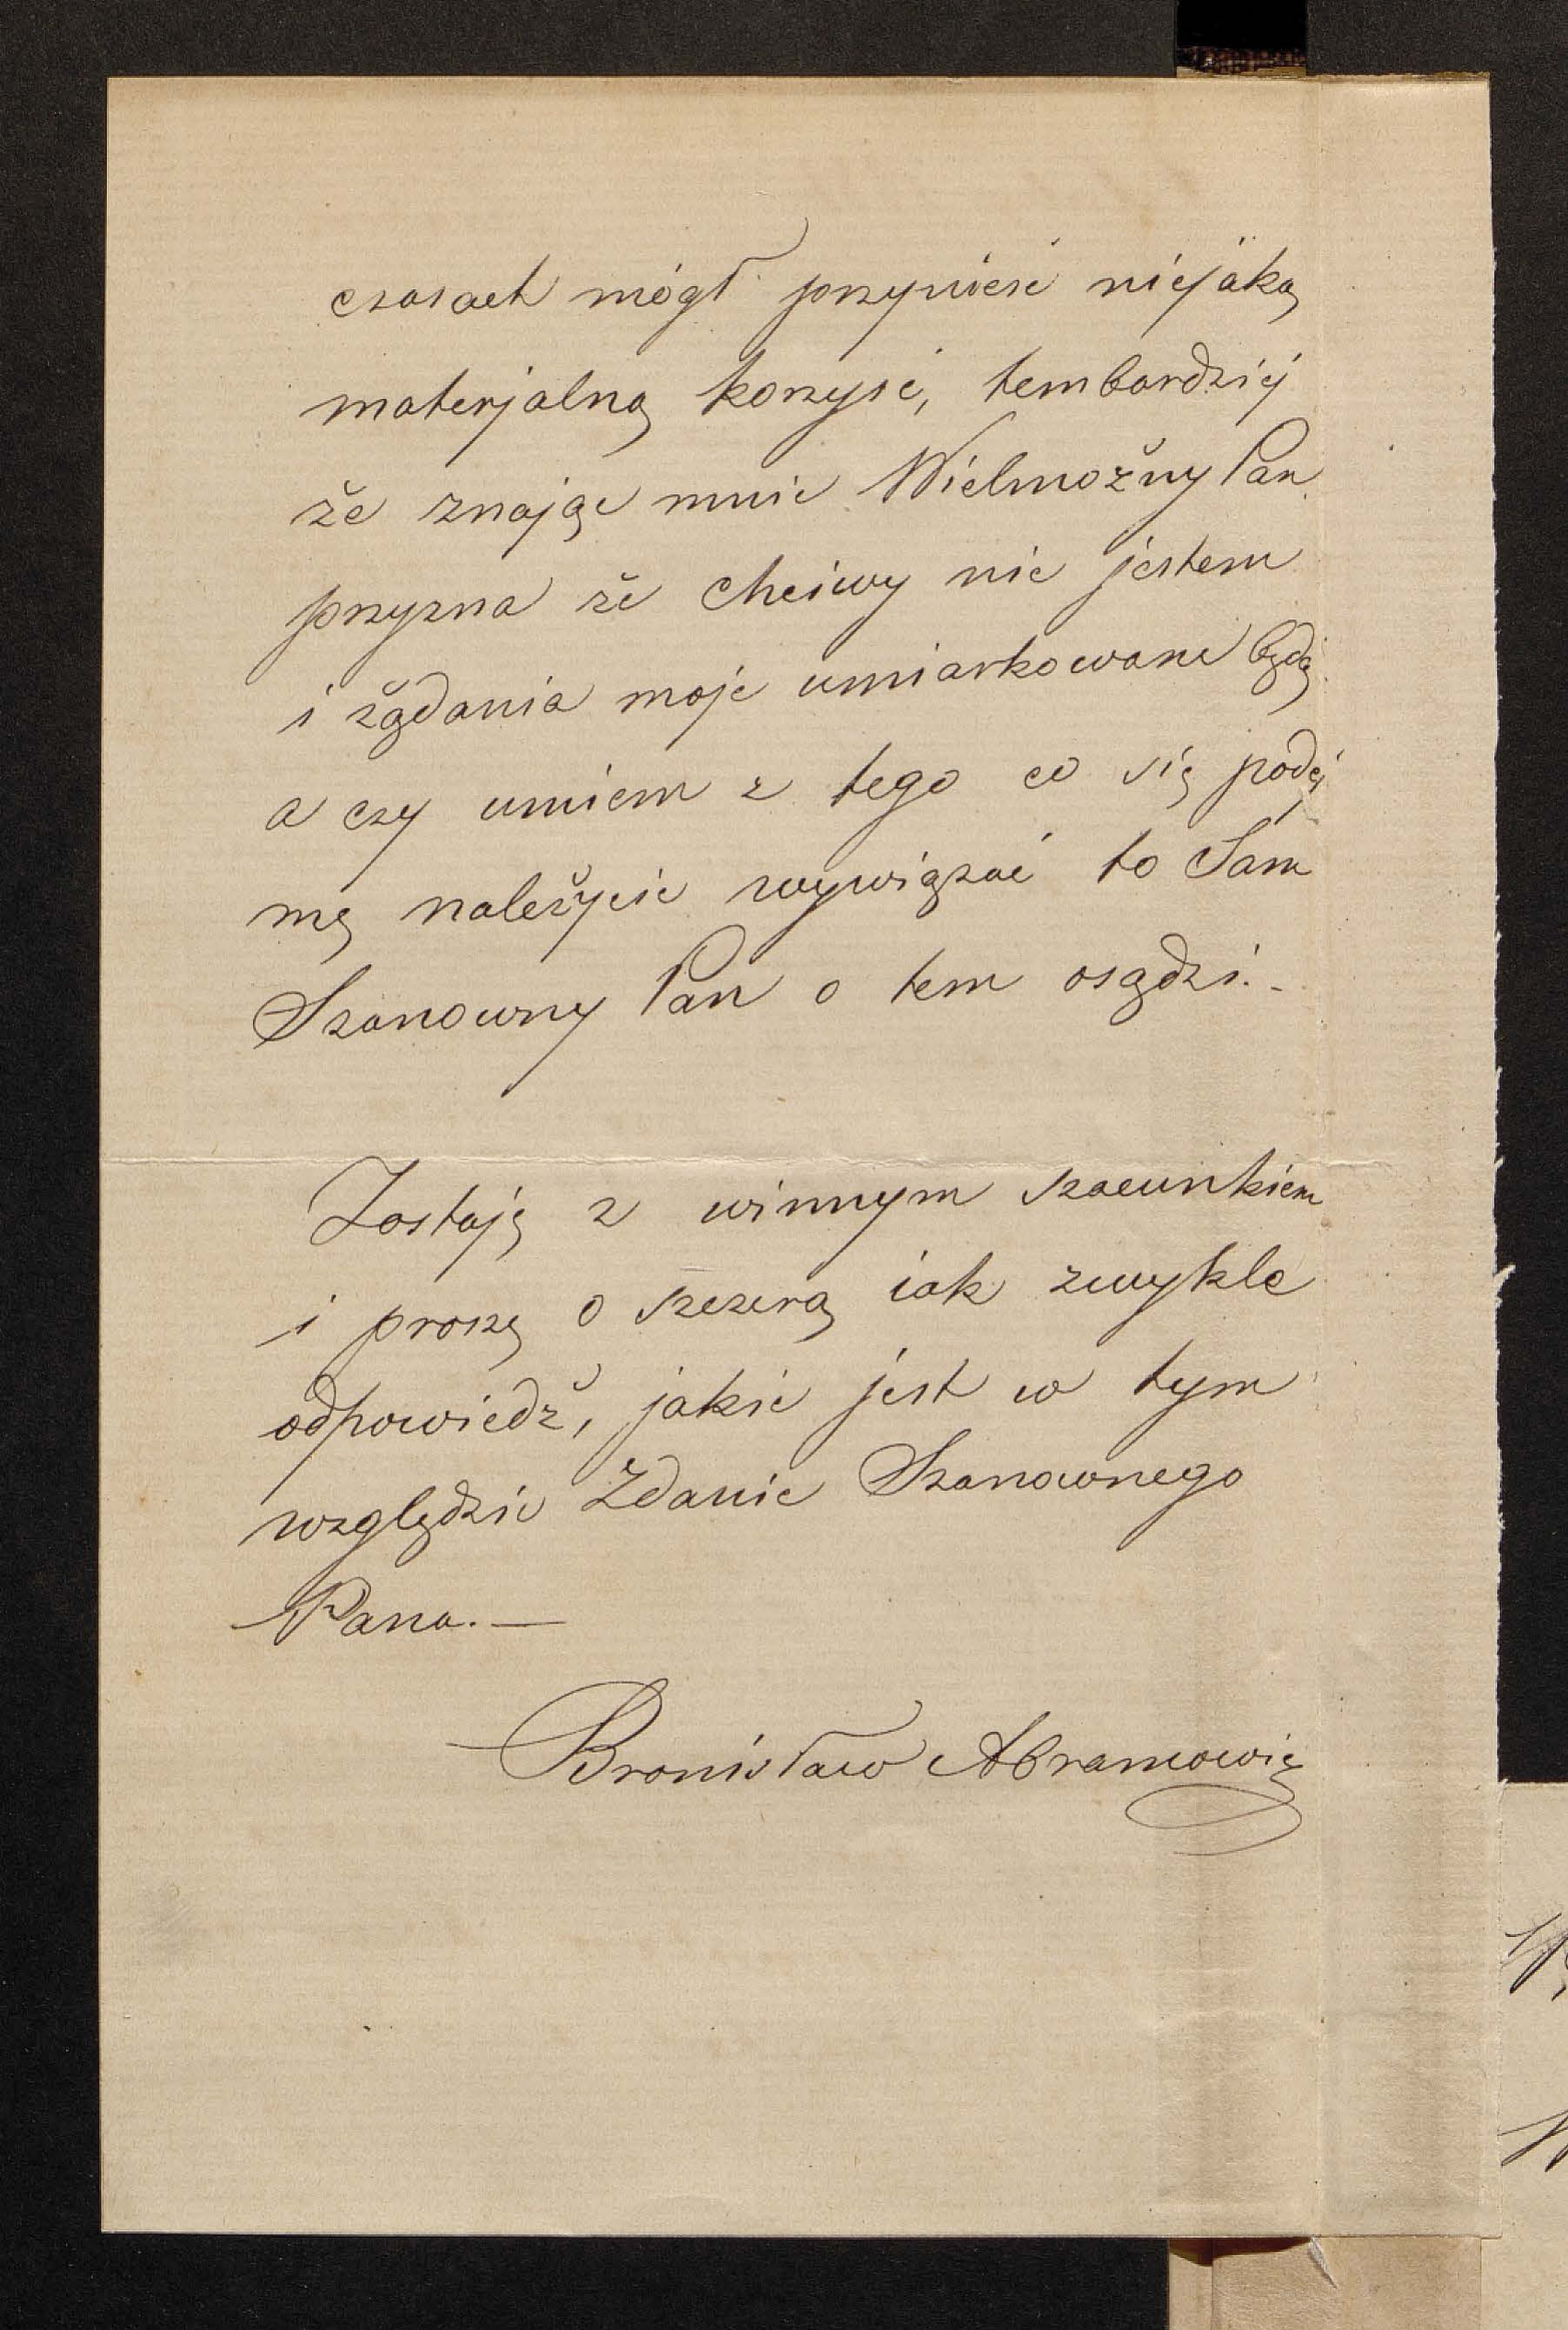 czasach mógł przynieść niejaką
materjalną korzyść, tembardziej
że znając mnie Wielmożny Pan
przyzna że Chciwy nie jestem
i żądania moje umiarkowane będą
a czy umiem z tego co się podej
mę należycie wywiązać to Sam
Szanowny Pan o tem osądzi.-
Zostaję z winnym szacunkiem
i proszę o szczerą iak zwykle
odpowiedź, jakie jest w tym
względzie Zdanie Szanownego
Pana.—
Bronisław Abramowicz